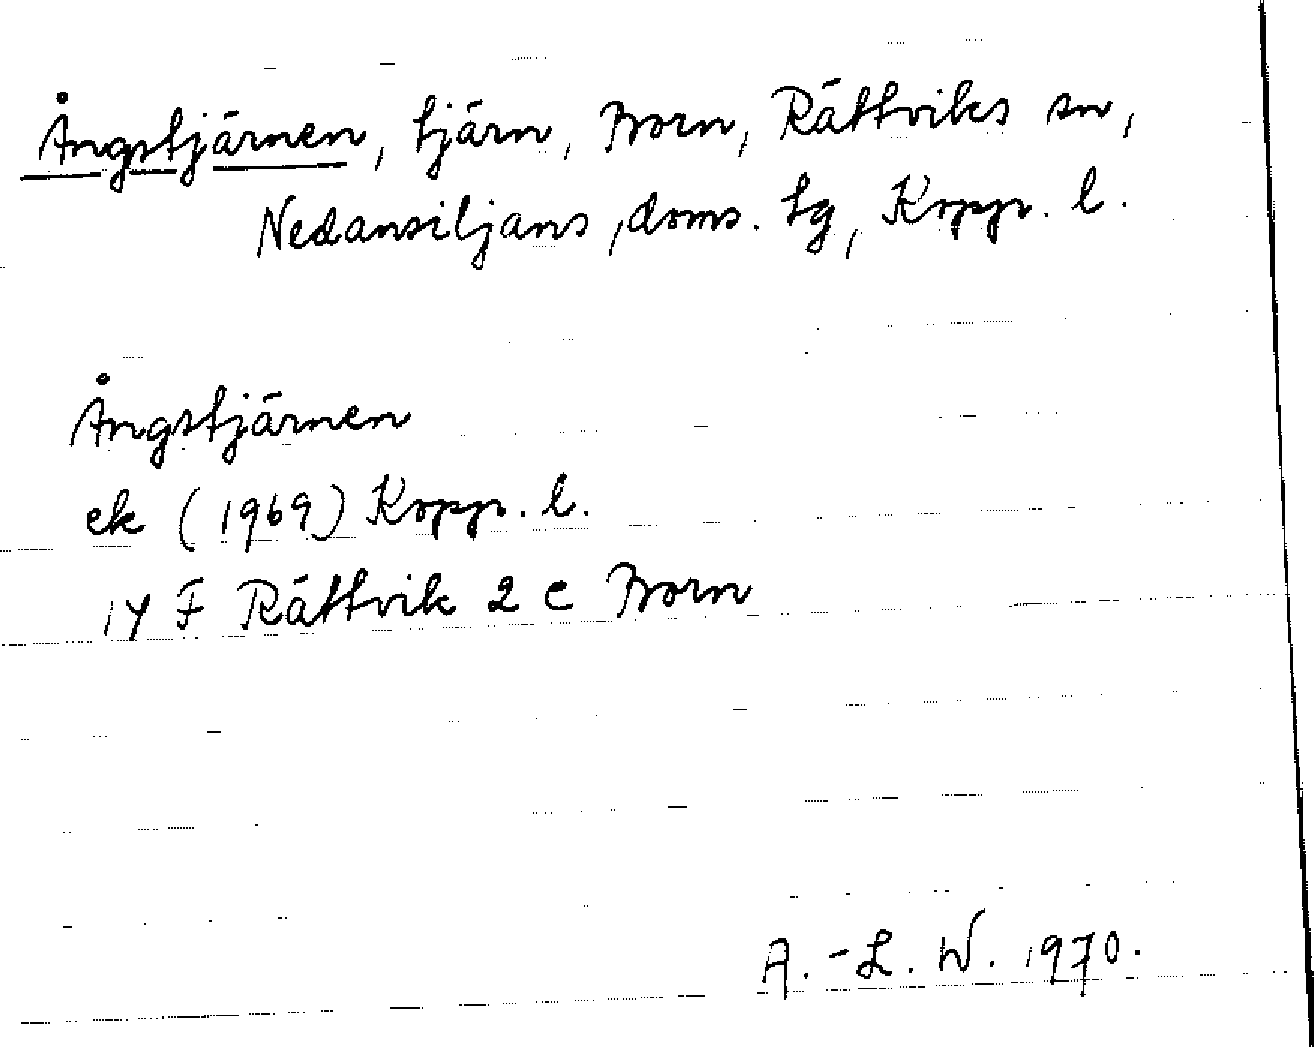 Ångstjärnen, tjärn, Born, Rättviks sn,
Nedansiljans, doms. tg, Kopp. l.
Ångstjärnen
ek (1969) Kopp. l.
14 F Rättvik 2 c Born
A.-L. W. 1970.